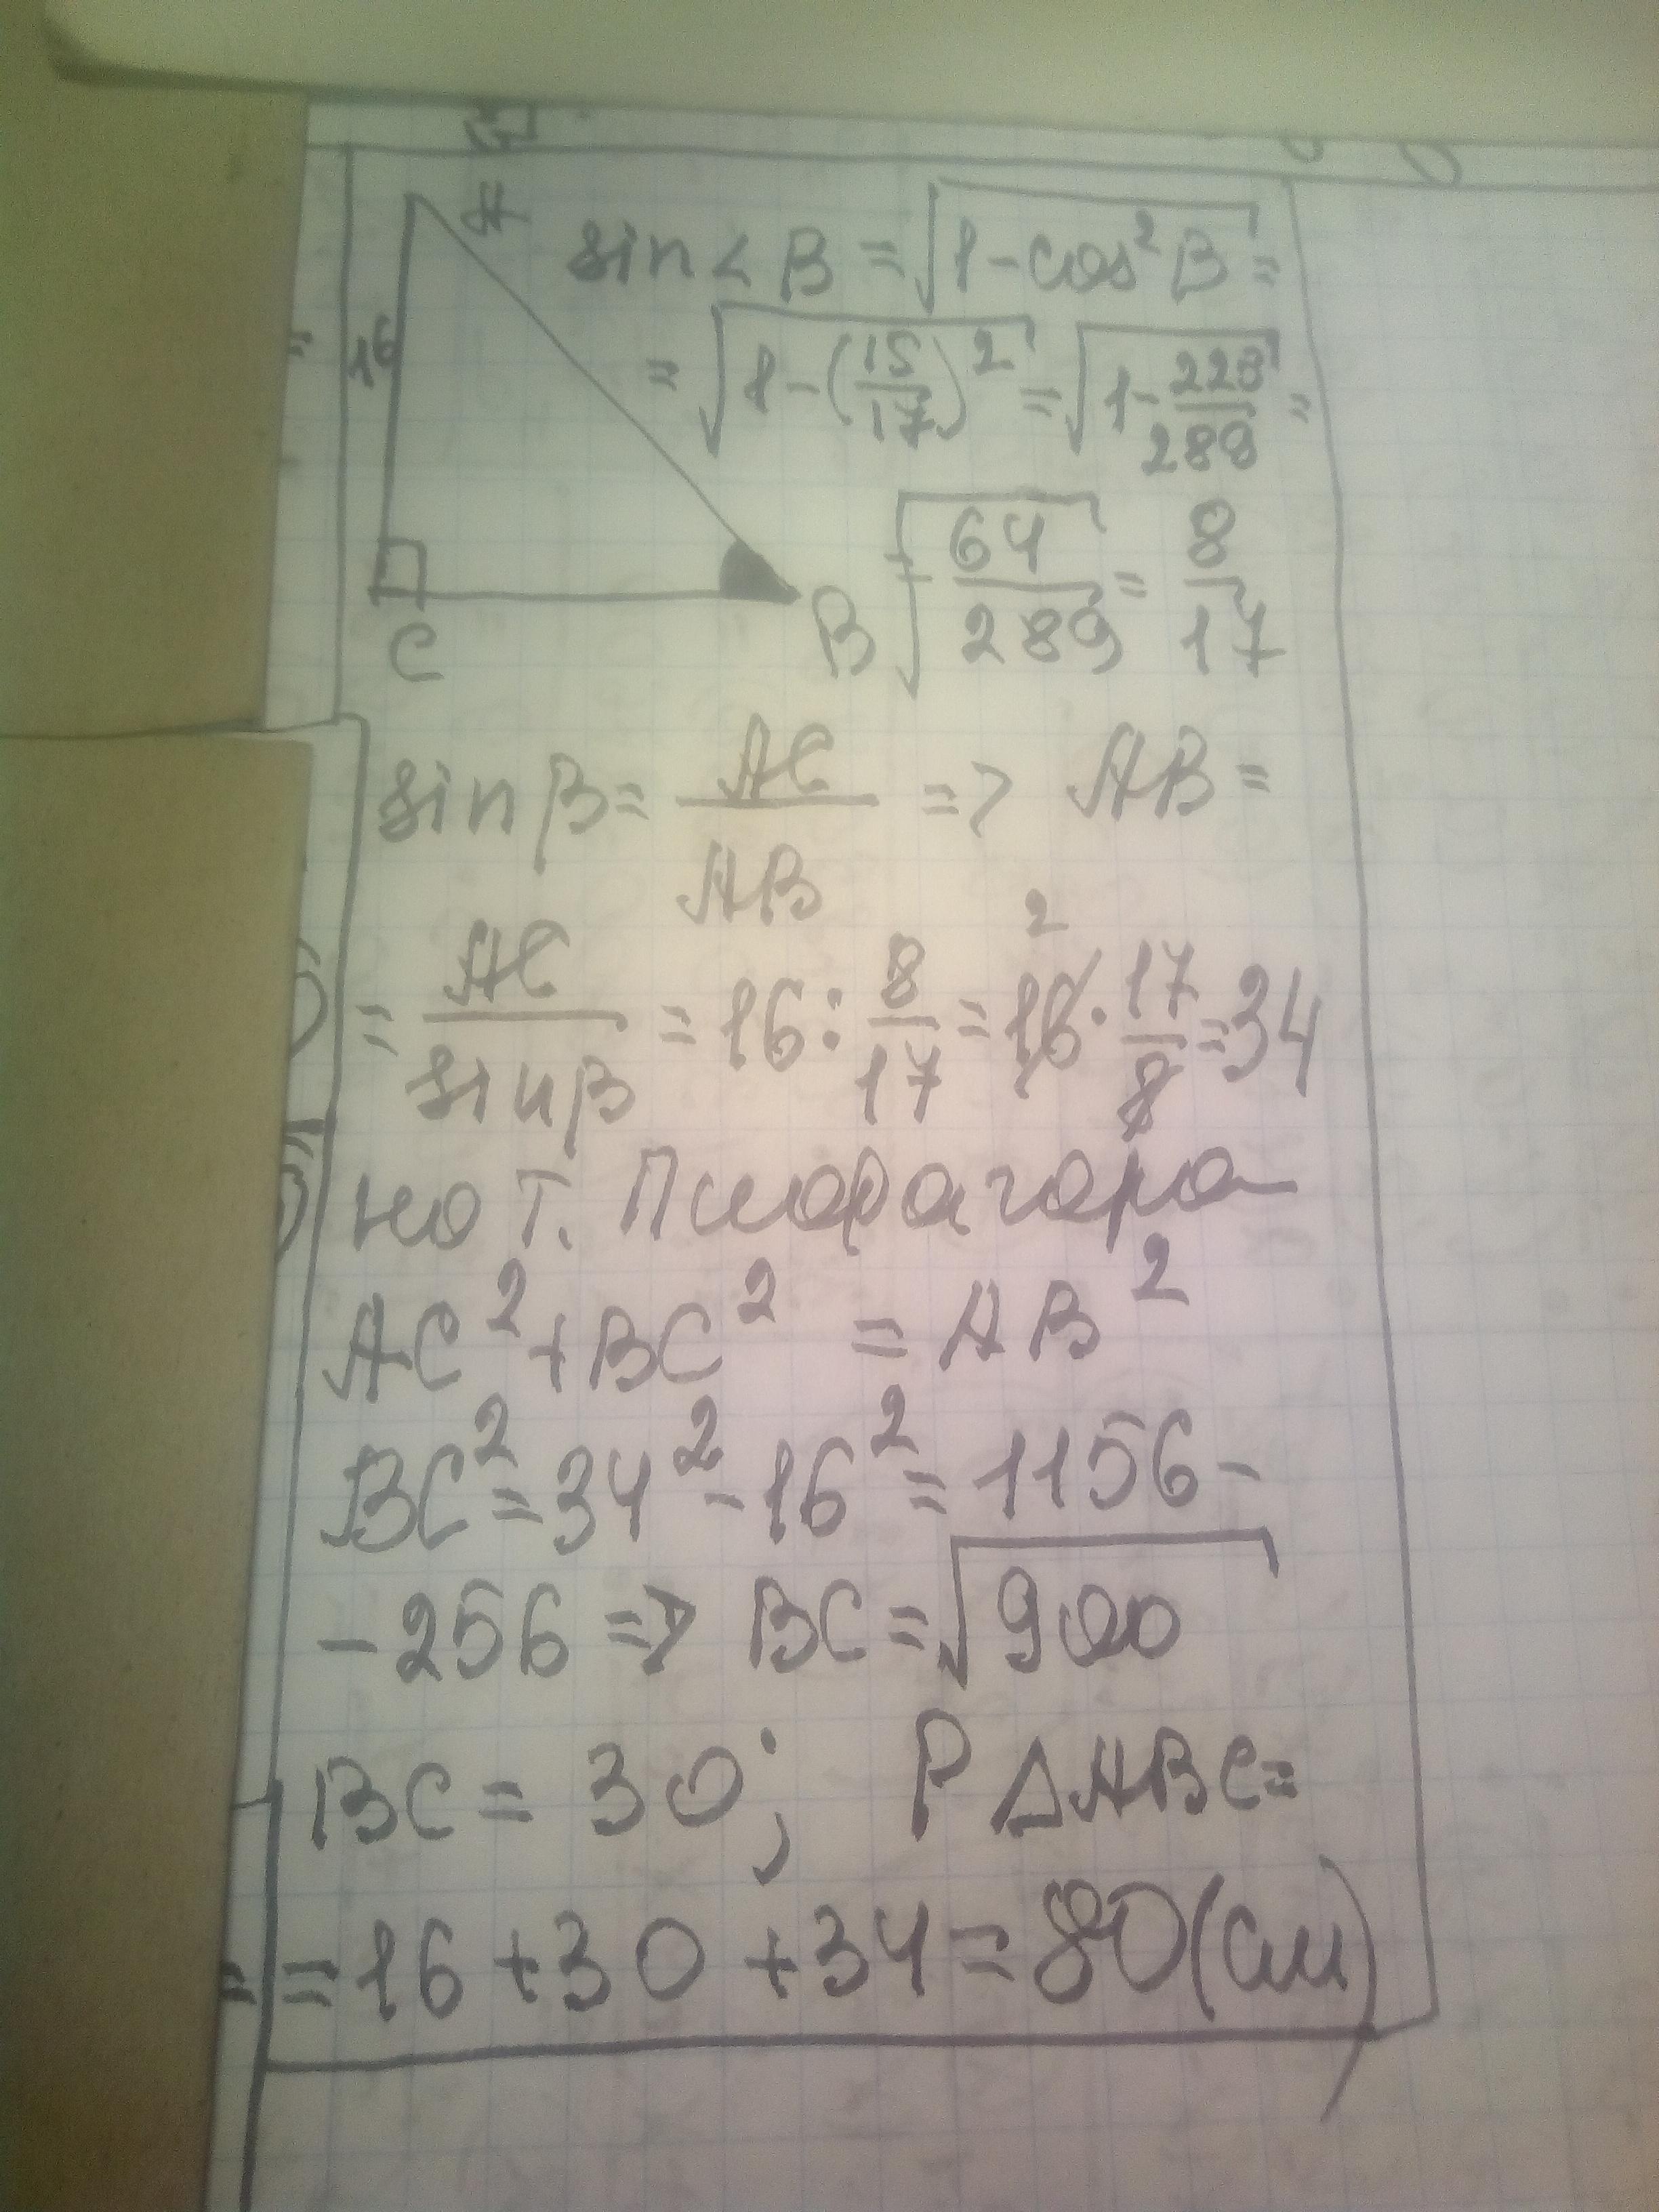 A
sin∠B = √(1 - cos²B) =
16
= √(1 - (15/17)²) = √(1 - 225/289) =
= √(64/289) = 8/17
C
B
sin β = AC/AB => AB =
= AC/sin β = 16 : 8/17 = 16 · 17/8 = 34
2
по т. Пифагора
AC² + BC² = AB²
BC² = 34² - 16² = 1156 -
- 256 => BC = √900
BC = 30; P△ABC =
= 16 + 30 + 34 = 80 (см)